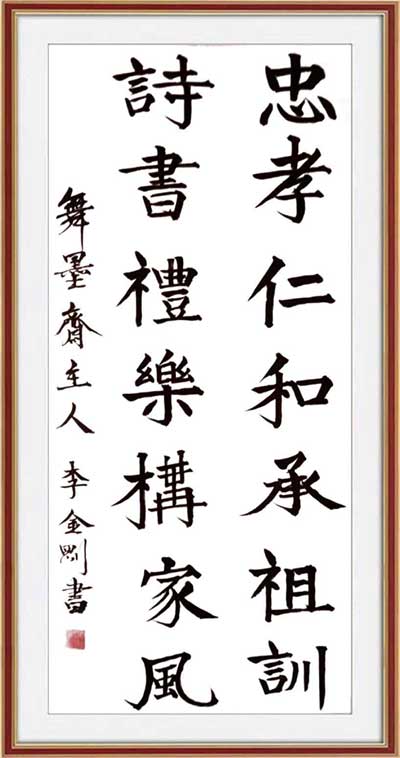 忠孝仁和承祖訓
詩書禮樂構家風
舞墨齋主人 李金剛書